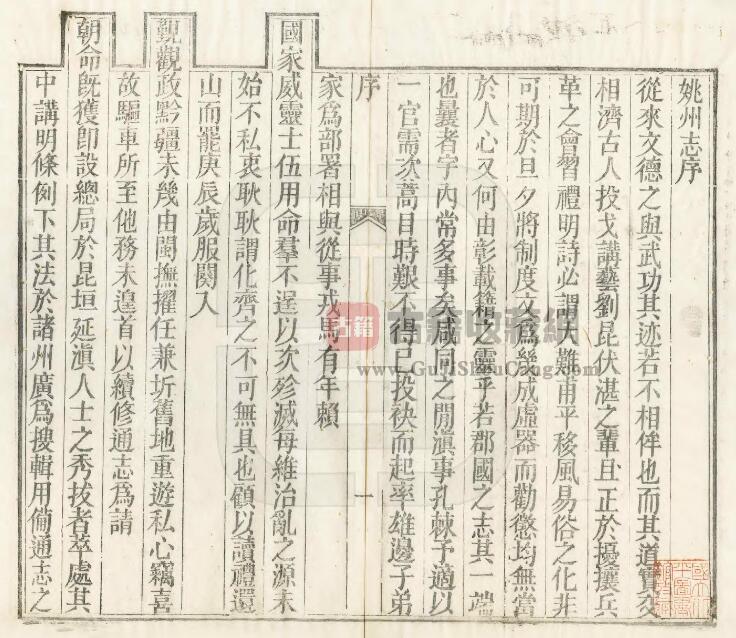 姚州志序
從來文德之與武功其迹若不相侔也而其道實交
相濟古人投戈講藝劉昆伏湛之輩且正於擾攘兵
革之會習禮明詩必謂大難甫平移風易俗之化非
可期於旦夕將制度文爲幾成虛器而勸懲均無當
於人心又何由彰載籍之靈乎若郡國之志其一端
也曩者宇內常多事矣咸同之閒滇事孔棘予適以
一官需次蒿目時艱不得已投袂而起率雄邊子弟
序
一
家爲部署相與從事戎馬有年賴
國家威靈士伍用命羣不逞以次殄滅每維治亂之源未
始不私衷耿耿謂化齊之不可無具也顧以讀禮還
山而罷庚辰歲服闋入
覲觀政黔疆未幾由閩撫擢任兼圻舊地重遊私心竊喜
故驅車所至他務未遑首以續修通志爲請
朝命旣獲卽設總局於昆垣延滇人士之秀拔者萃處其
中講明條例下其法於諸州廣爲搜輯用備通志之
古籍
www.GuJiShouCang.com